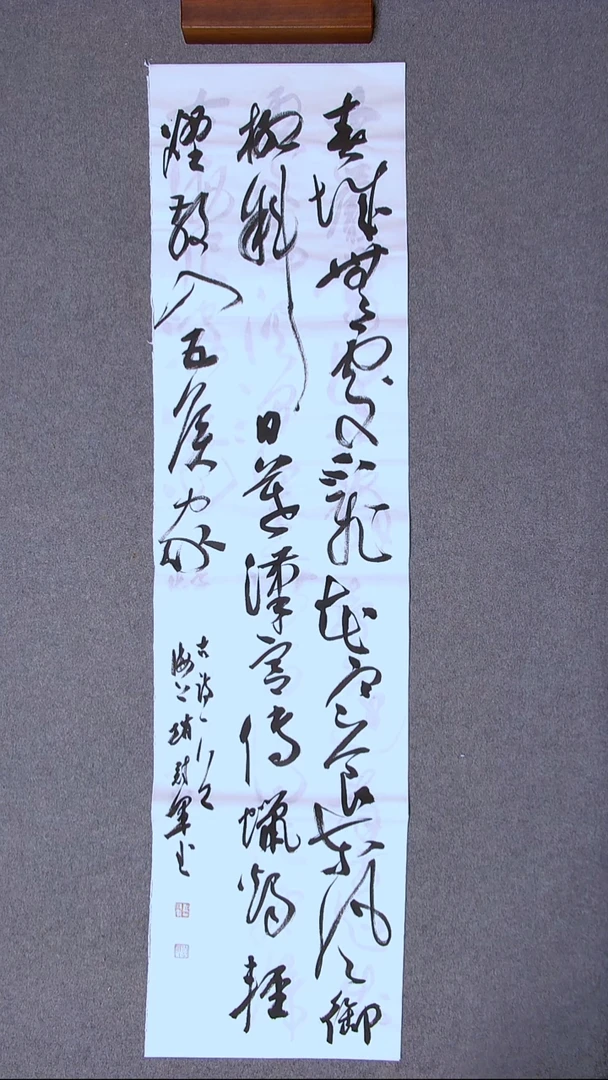 春城無處不飛花寒食東風御
柳斜日暮漢宮傳蠟燭輕
煙散入五侯家
古詩一首
海上趙軍书